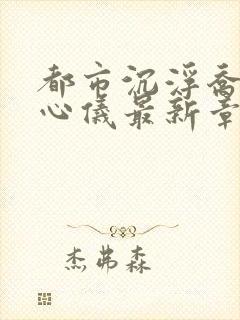 都市沉浮乔
心仪最新章
杰弗森